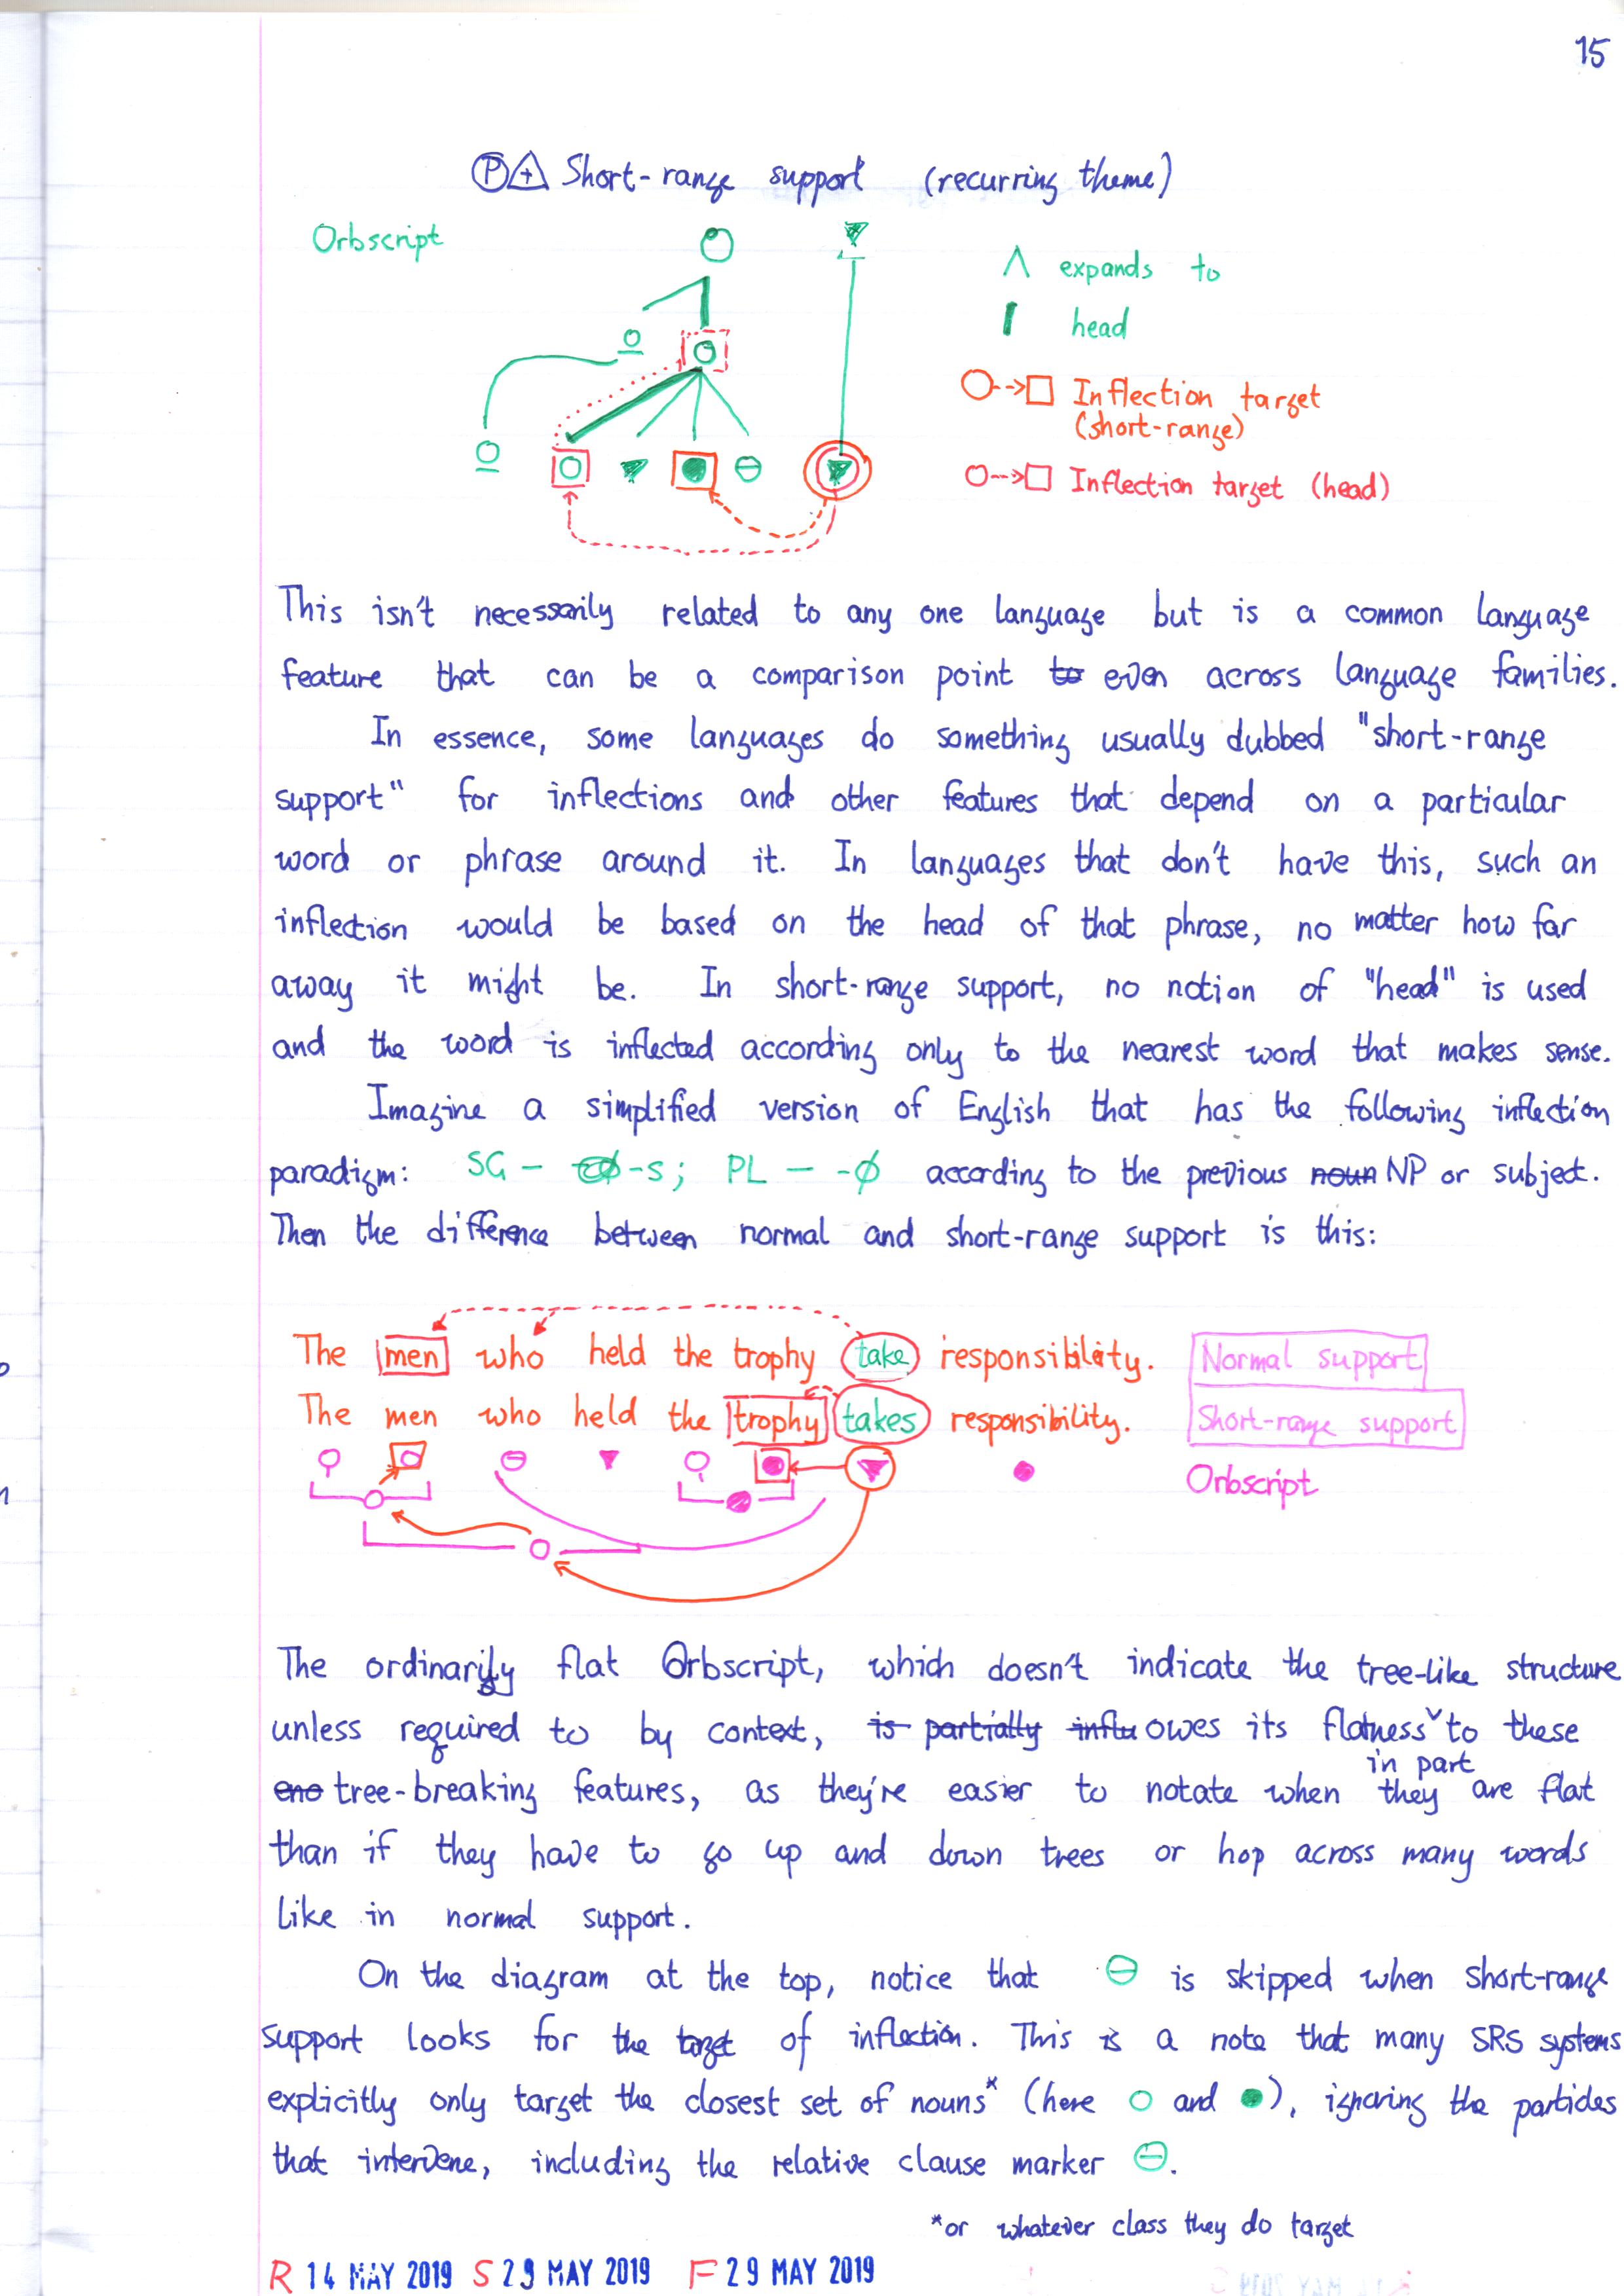 15
Ⓟ Short-range support (recurring theme)
Orbscript
∧ expands to
head
Inflection target
(short-range)
Inflection target (head)
This isn't necessarily related to any one language but is a common language
feature that can be a comparison point to even across language families.
In essence, some languages do something usually dubbed "short-range
support" for inflections and other features that depend on a particular
word or phrase around it. In languages that don't have this, such an
inflection would be based on the head of that phrase, no matter how far
away it might be. In short-range support, no notion of "head" is used
and the word is inflected according only to the nearest word that makes sense.
Imagine a simplified version of English that has the following inflection
paradigm: SG – -s; PL – -∅ according to the previous noun NP or subject.
Then the difference between normal and short-range support is this:
The men who held the trophy take responsibility. Normal support
The men who held the trophy takes responsibility. Short-range support
Orbscript
The ordinarily flat Orbscript, which doesn't indicate the tree-like structure
unless required to by context, is partially influ owes its flatness ˅ to these
in part
eno tree-breaking features, as they're easier to notate when they are flat
than if they have to go up and down trees or hop across many words
like in normal support.
On the diagram at the top, notice that ⊖ is skipped when short-range
support looks for the target of inflection. This is a note that many SRS systems
explicitly only target the closest set of nouns* (here ○ and ●), ignoring the particles
that intervene, including the relative clause marker ⊖.
*or whatever class they do target
R 14 MAY 2019 S 29 MAY 2019 F 29 MAY 2019